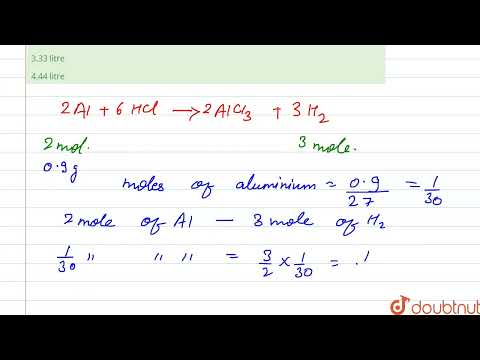 3.33 litre
4.44 litre
2Al + 6 HCl → 2AlCl3 + 3H2
2 mol. 3 mole.
0.9g
moles of aluminium = 0.9/27 = 1/30
2 mole of Al — 3 mole of H2
1/30 " " " = 3/2 × 1/30 = .1
doubtnut